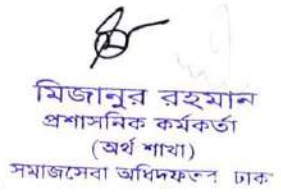 মিজানুর রহমান
প্রশাসনিক কর্মকর্তা
(অর্থ শাখা)
সমাজসেবা অধিদফতর ঢাকা